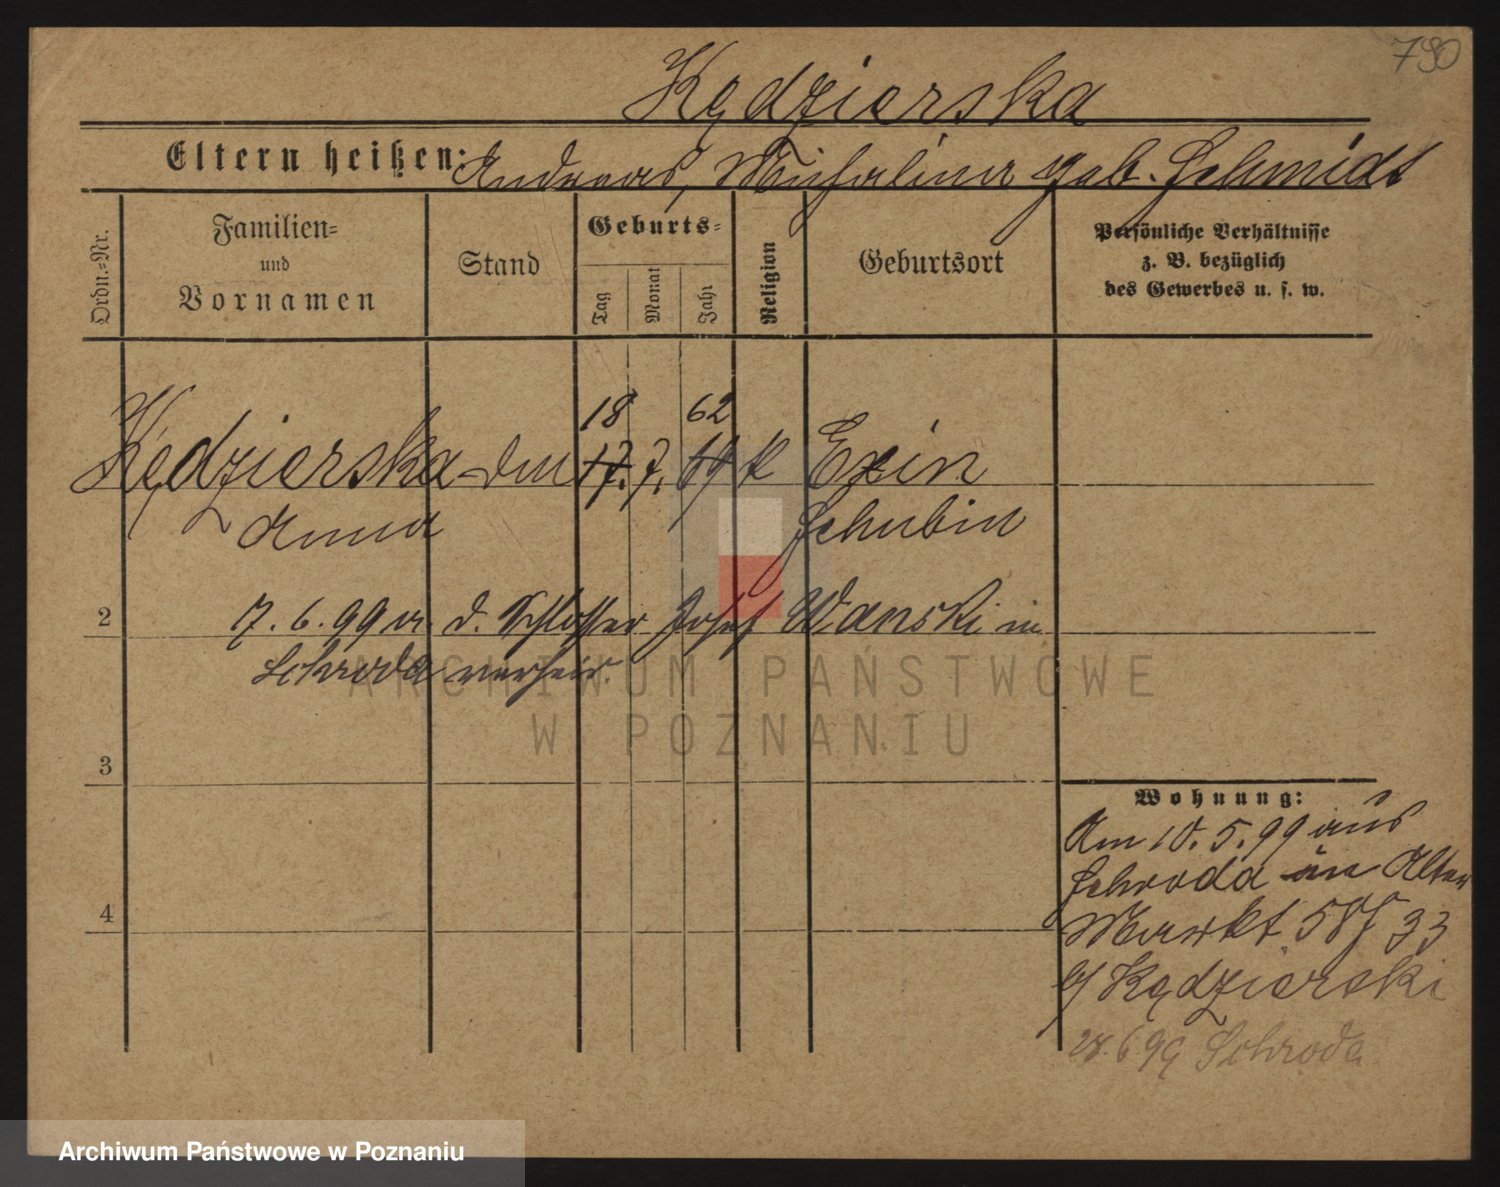 790
Kędzierska
Eltern heißen: Andreas, Michalina geb. Schmidt
Ordn.=Nr.
Familien=
und
Vornamen
Stand
Geburts=
Tag
Monat
Jahr
Religion
Geburtsort
Persönliche Verhältnisse
z. B. bezüglich
des Gewerbes u. s. w.
18 62
Kędzierska 17. 7. 69 k Exin
Anna Schubin
2
7. 6. 99 m. d. Schlosser Josef Wanski in
Schroda verheir.
ARCHIWUM PAŃSTWOWE
W POZNANIU
3
Wohnung:
Am 10. 5. 99 aus
Schroda Alter
4
Markt 33
b/ Kędzierski
6 99 Schroda
Archiwum Państwowe w Poznaniu